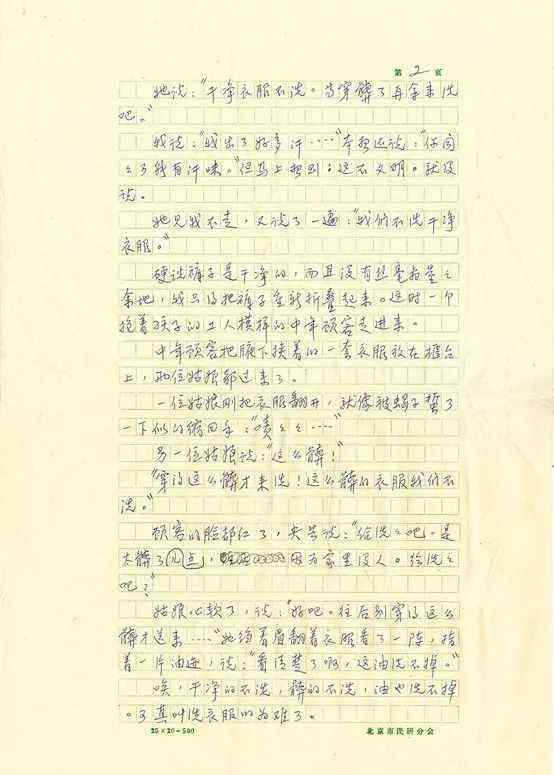 第 2 页
她说："干净衣服不洗。等穿髒了再拿来洗
吧。"
我说："我出了好多汗……"本想还说："你闻
々了我有汗味。"但马上想到：这不文明。就没
说。
她见我不走，又说了一遍："我们不洗干净
衣服。"
硬说裤子是干净的，而且没有丝毫指望之
余地，我只得把裤子重新折叠起来。这时一个
抱着孩子的工人模样的中年顾客走进来。
中年顾客把腋下挟着的一套衣服放在柜台
上，两位姑娘都过来了。
一位姑娘刚把衣服翻开，就像被蝎子蜇了
一下似的缩回手："啧々々……"
另一位姑娘说："这么髒！"
"穿得这么髒才来洗！这么髒的衣服我们不
洗。"
顾客的脸都红了，央告说："给洗々吧。是
太髒了几点，因为家里没人。给洗々
吧？"
姑娘心软了，说："好吧。往后别穿得这么
髒才送来……"她绉着眉翻着衣服看了一阵，指
着一片油迹，说："看清楚了啊，这油洗不掉。"
唉，干净的不洗，髒的不洗，油也洗不掉
。可真叫洗衣服的为难了。
25×20=500
北京市民研分会